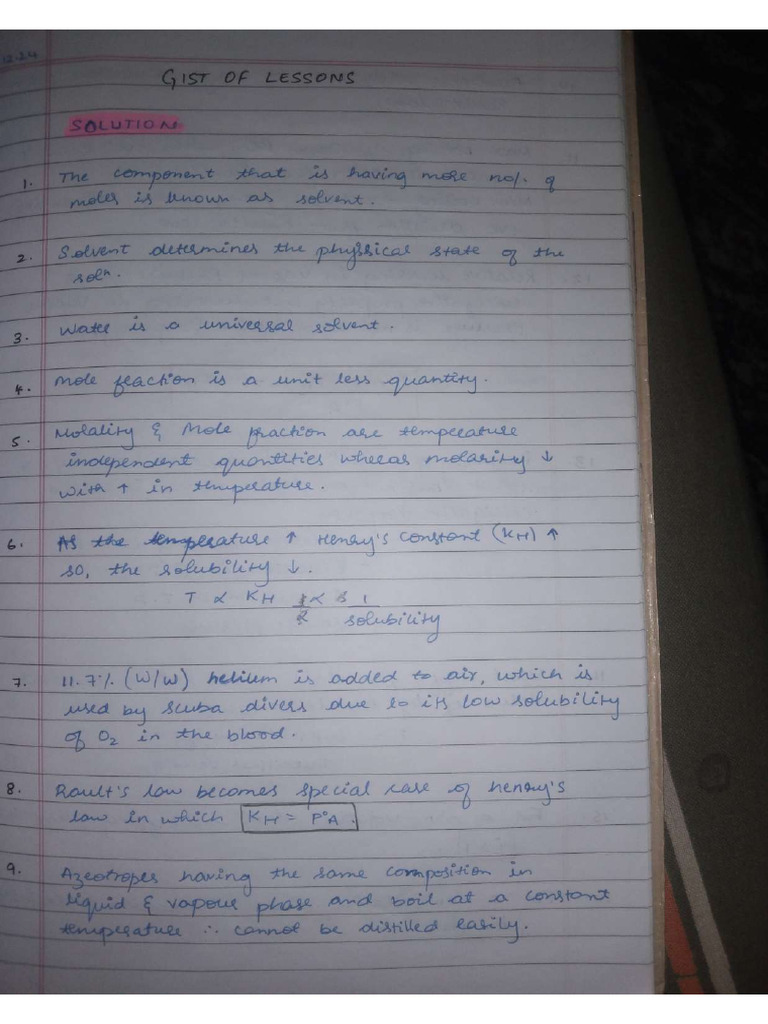 12.24
GIST OF LESSONS
SOLUTION
1. The component that is having more no/. of
moles is known as solvent.
2. Solvent determines the physsical state of the
solⁿ.
3. Water is a universal solvent.
4. Mole fraction is a unit less quantity.
5. Molality & Mole fraction are temperature
independent quantities wheras molarity ↓
with ↑ in temperature.
6. As the temperature ↑ Henry's constant (KH) ↑
so, the solubility ↓.
T ∝ KH ∝ 1
solubility
7. 11.7% (W/W) helium is added to air, which is
used by scuba divers due to its low solubility
of O₂ in the blood.
8. Roult's law becomes special case of henry's
law in which KH = P°A.
9. Azeotropes having the same composition in
liquid & vapour phase and boil at a constant
temperature ∴ cannot be distilled easily.